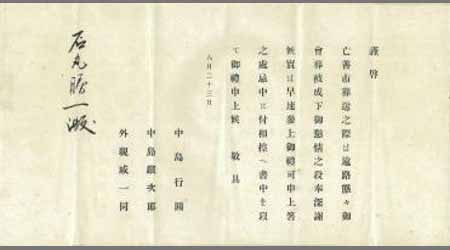 謹啓
亡善市葬送之際は遠路態々御
會葬被成下御懇情之段奉深謝
候實は早速參上御禮可申上筈
之處忌中に付相控へ書中を以
て御禮申上候 敬具
八月二十三日
中島行
中島次郎
外親戚一同
石丸一殿